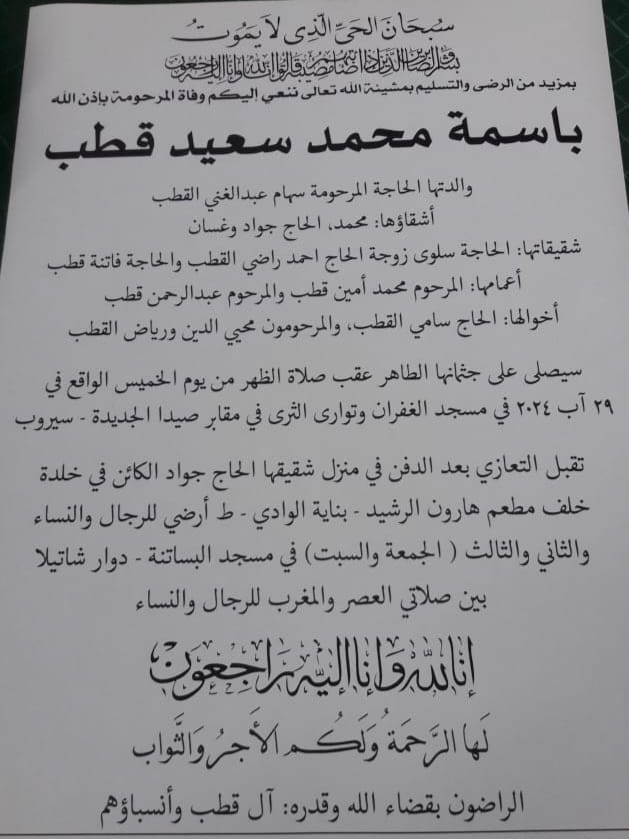 سبحان الحي الذي لا يموت
وبشر الصابرين الذين إذا أصابتهم مصيبة قالوا إنا لله وإنا إليه راجعون
بمزيد من الرضى والتسليم بمشيئة الله تعالى ننعي إليكم وفاة المرحومة بإذن الله
باسمة محمد سعيد قطب
والدتها الحاجة المرحومة سهام عبدالغني القطب
أشقاؤها: محمد، الحاج جواد وغسان
شقيقاتها: الحاجة سلوى زوجة الحاج احمد راضي القطب والحاجة فاتنة قطب
أعمامها: المرحوم محمد أمين قطب والمرحوم عبدالرحمن قطب
أخوالها: الحاج سامي القطب، والمرحومون محيي الدين ورياض القطب
سيصلى على جثمانها الطاهر عقب صلاة الظهر من يوم الخميس الواقع في
٢٩ آب ٢٠٢٤ في مسجد الغفران وتوارى الثرى في مقابر صيدا الجديدة - سيروب
تقبل التعازي بعد الدفن في منزل شقيقها الحاج جواد الكائن في خلدة
خلف مطعم هارون الرشيد - بناية الوادي - ط أرضي للرجال والنساء
والثاني والثالث ( الجمعة والسبت) في مسجد البساتنة - دوار شاتيلا
بين صلاتي العصر والمغرب للرجال والنساء
إنا لله وإنا إليه راجعون
لَها الرَّحمَةُ وَلَكُم الأَجرُ وَالثَّواب
الراضون بقضاء الله وقدره: آل قطب وأنسباؤهم